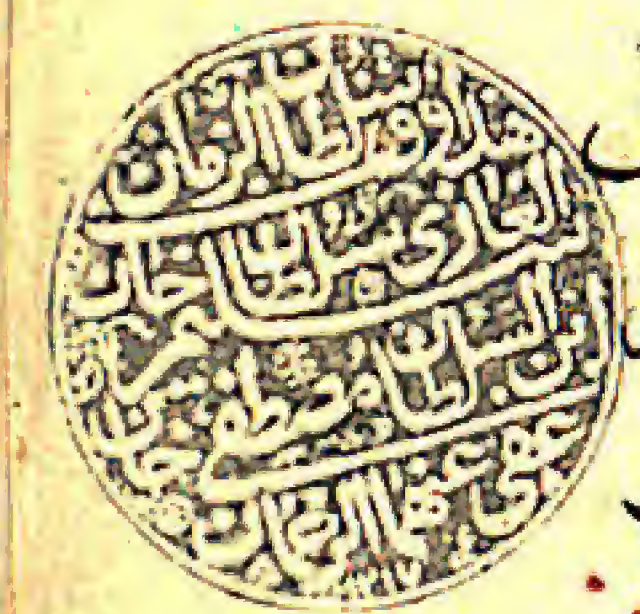 هذا وقف سلطان الزمان
الغازي سلطان سليم خان
ابن السلطان مصطفى خان
عفى عنهما الرحمن
١٢١٧